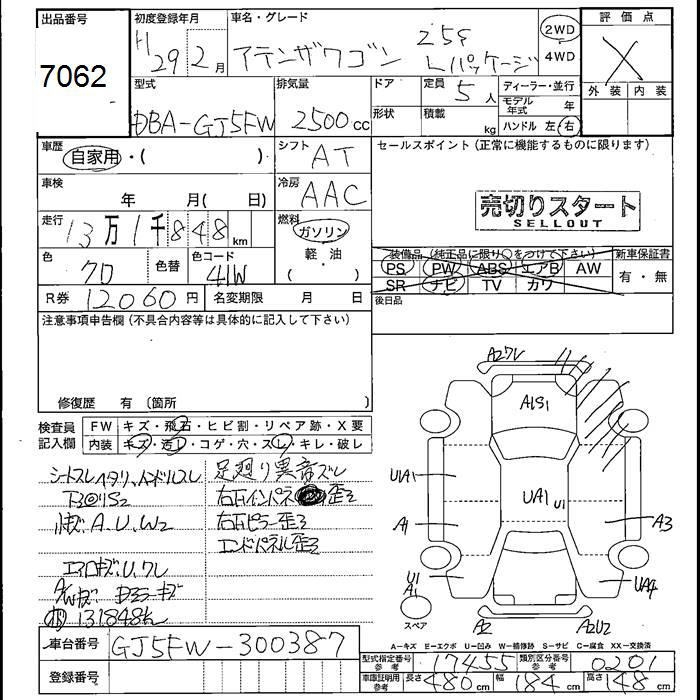 出品番号
7062
初度登録年月
H29 2月
車名・グレード
アテンザワゴン 25S Lパッケージ
2WD
4WD
評価点
X
外装 内装
型式
DBA-GJ5FW
排気量
2500cc
ドア
形状
定員
5人
積載
kg
ディーラー・並行
モデル年式 年
ハンドル 左 右
車歴
自家用・( )
シフト
AT
セールスポイント(正常に機能するものに限ります)
車検
年 月( 日)
冷房
AAC
売切りスタート
SELLOUT
走行
13万1千848km
燃料
ガソリン
軽・油
( )
色
クロ
色替
色コード
41W
装備品(純正品に限り○をつけて下さい)
PS PW ABS エアB AW
SR ナビ TV カワ
新車保証書
有・無
R券 12060円
名変期限 月 日
後日品
注意事項申告欄(不具合内容等は具体的に記入して下さい)
修復歴 有 (箇所 )
検査員記入欄
FW キズ・飛石・ヒビ割・リペア跡・X要
内装 キズ・汚レ・コゲ・穴・スレ・キレ・破レ
シートスレ ヘタリ、ハンドルスレ
足廻り異音ズレ
右下インパネ 歪ミ
小キズ A.U.W2
右下ピラー歪ミ
エンドパネル歪ミ
エアロキズ.U.ワレ
131848k
A2ワレ
A1S1
U1A1
UA1 U1
A1
A3
U1
A1
UA4
スペア
A2
A2U2
A-キズ E-エクボ U-凹み W-補修跡 S-サビ C-腐食 XX-交換済
車台番号
GJ5FW-300387
登録番号
型式指定番号 参考
17455
類別区分番号 参考
0201
車庫証明用 参考
長さ 480cm
幅 184cm
高さ 148cm